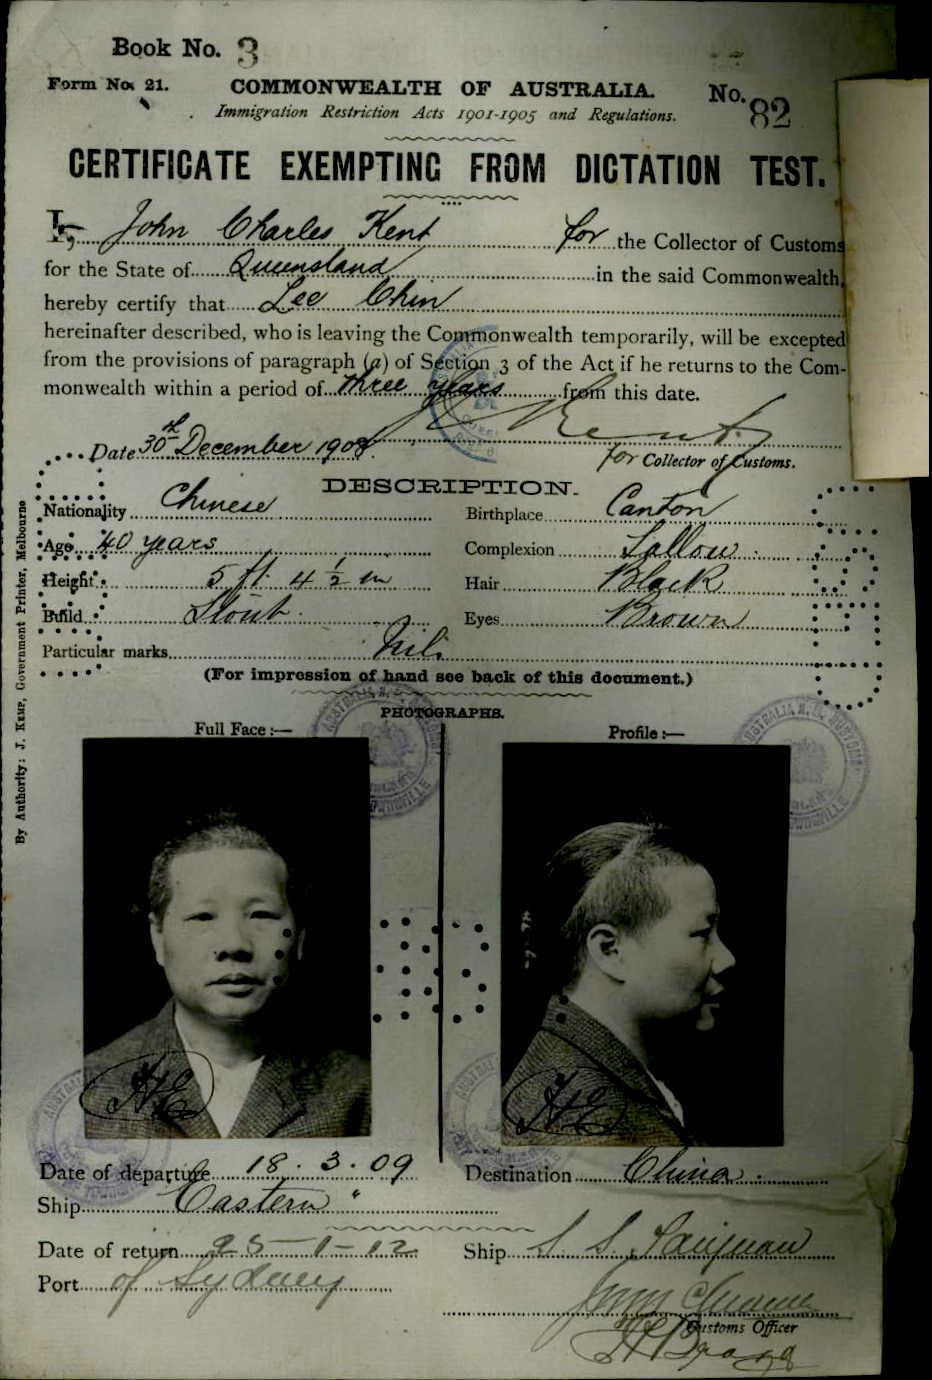 Book No. 3
Form No. 21. COMMONWEALTH OF AUSTRALIA. No. 82
Immigration Restriction Acts 1901-1905 and Regulations.
CERTIFICATE EXEMPTING FROM DICTATION TEST.
I, John Charles Kent for the Collector of Customs
for the State of Queensland in the said Commonwealth,
hereby certify that Lee Chin
hereinafter described, who is leaving the Commonwealth temporarily, will be excepted
from the provisions of paragraph (a) of Section 3 of the Act if he returns to the Com-
monwealth within a period of three years from this date.
J C Kent.
Date 30th December 1908. for Collector of Customs.
DESCRIPTION.
Nationality Chinese Birthplace Canton
Age 40 years Complexion Sallow.
Height 5 ft. 4 1/2 in Hair Black
Build Stout. Eyes Brown
Particular marks Nil.
(For impression of hand see back of this document.)
PHOTOGRAPHS.
Full Face:— Profile:—
Date of departure 18.3.09 Destination China.
Ship Eastern "
Date of return 25-1-12 Ship S S. Taiyuan
Port of Sydney
Customs Officer
By Authority: J. KEMP, Government Printer, Melbourne